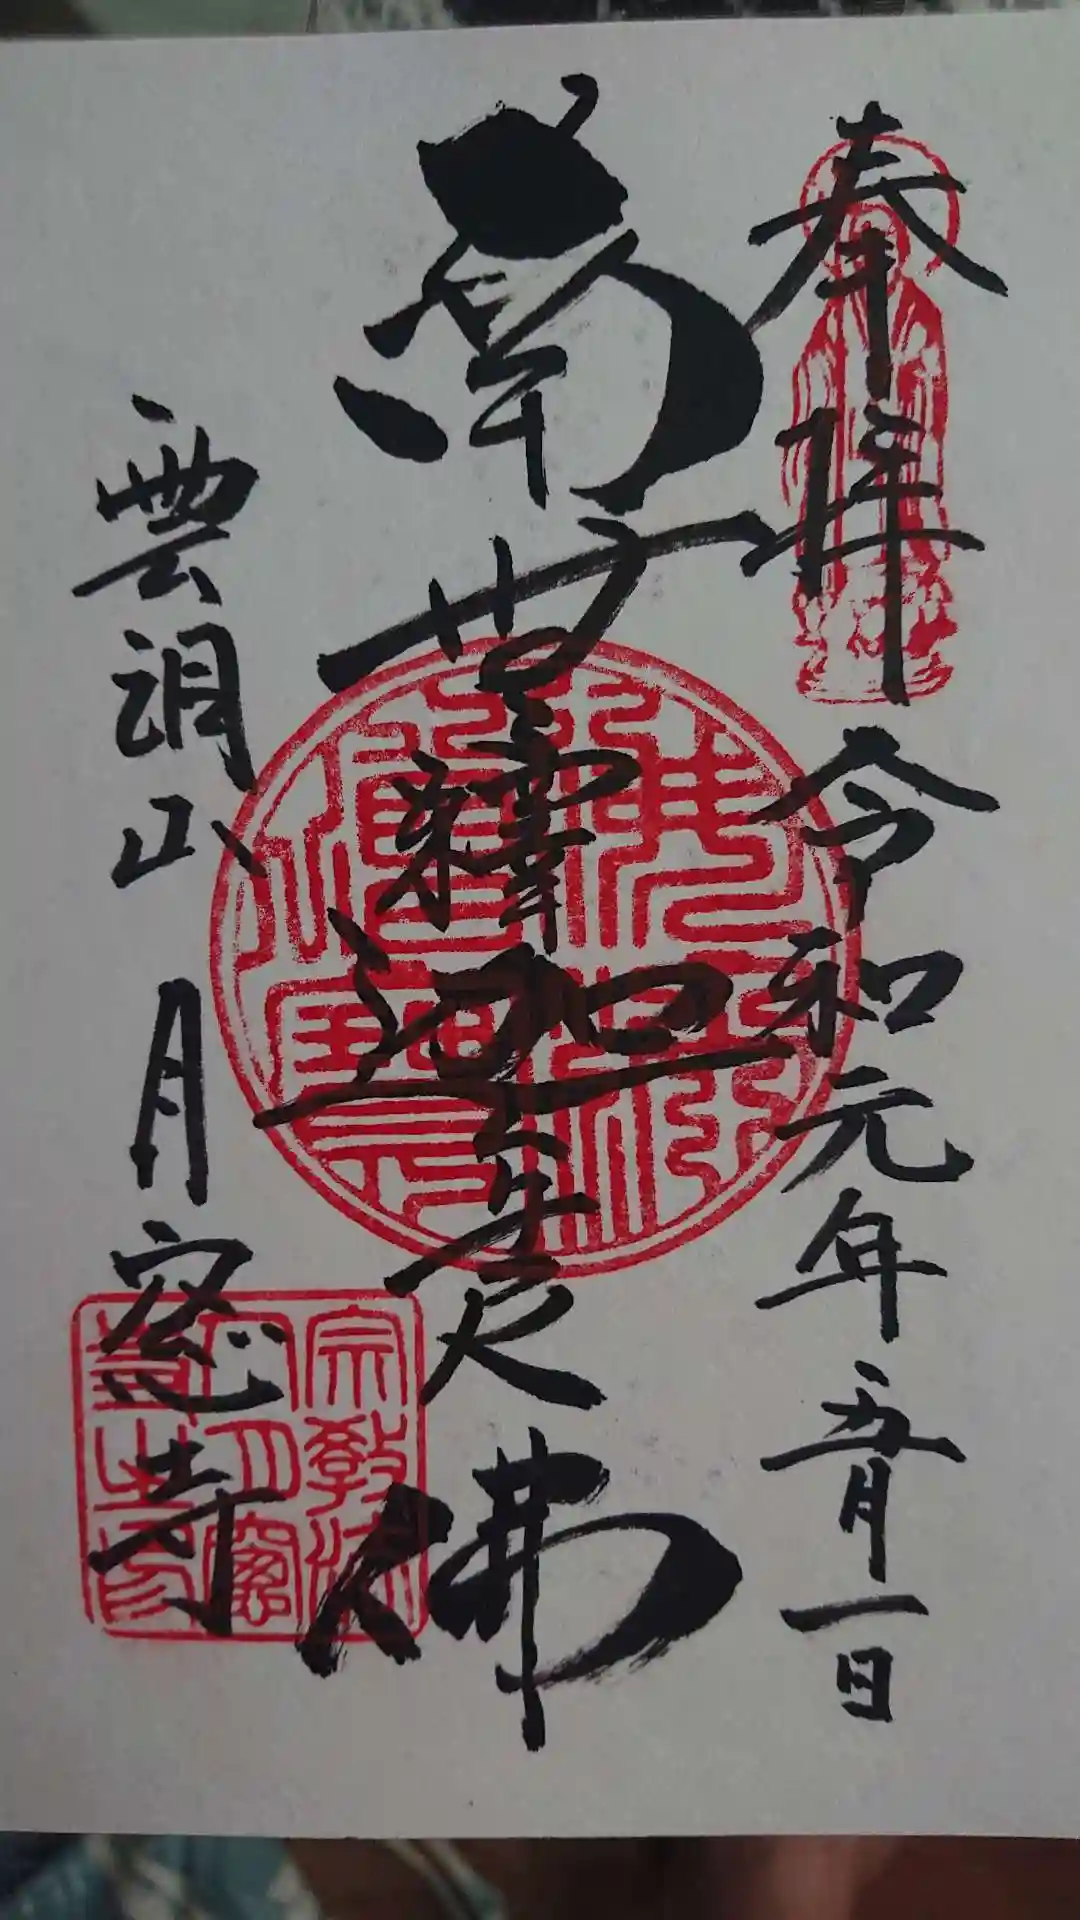 奉拝 令和元年五月一日
南無釋迦牟尼佛
雲洞山 月窓寺
佛法僧寶
宗教法人月窓寺